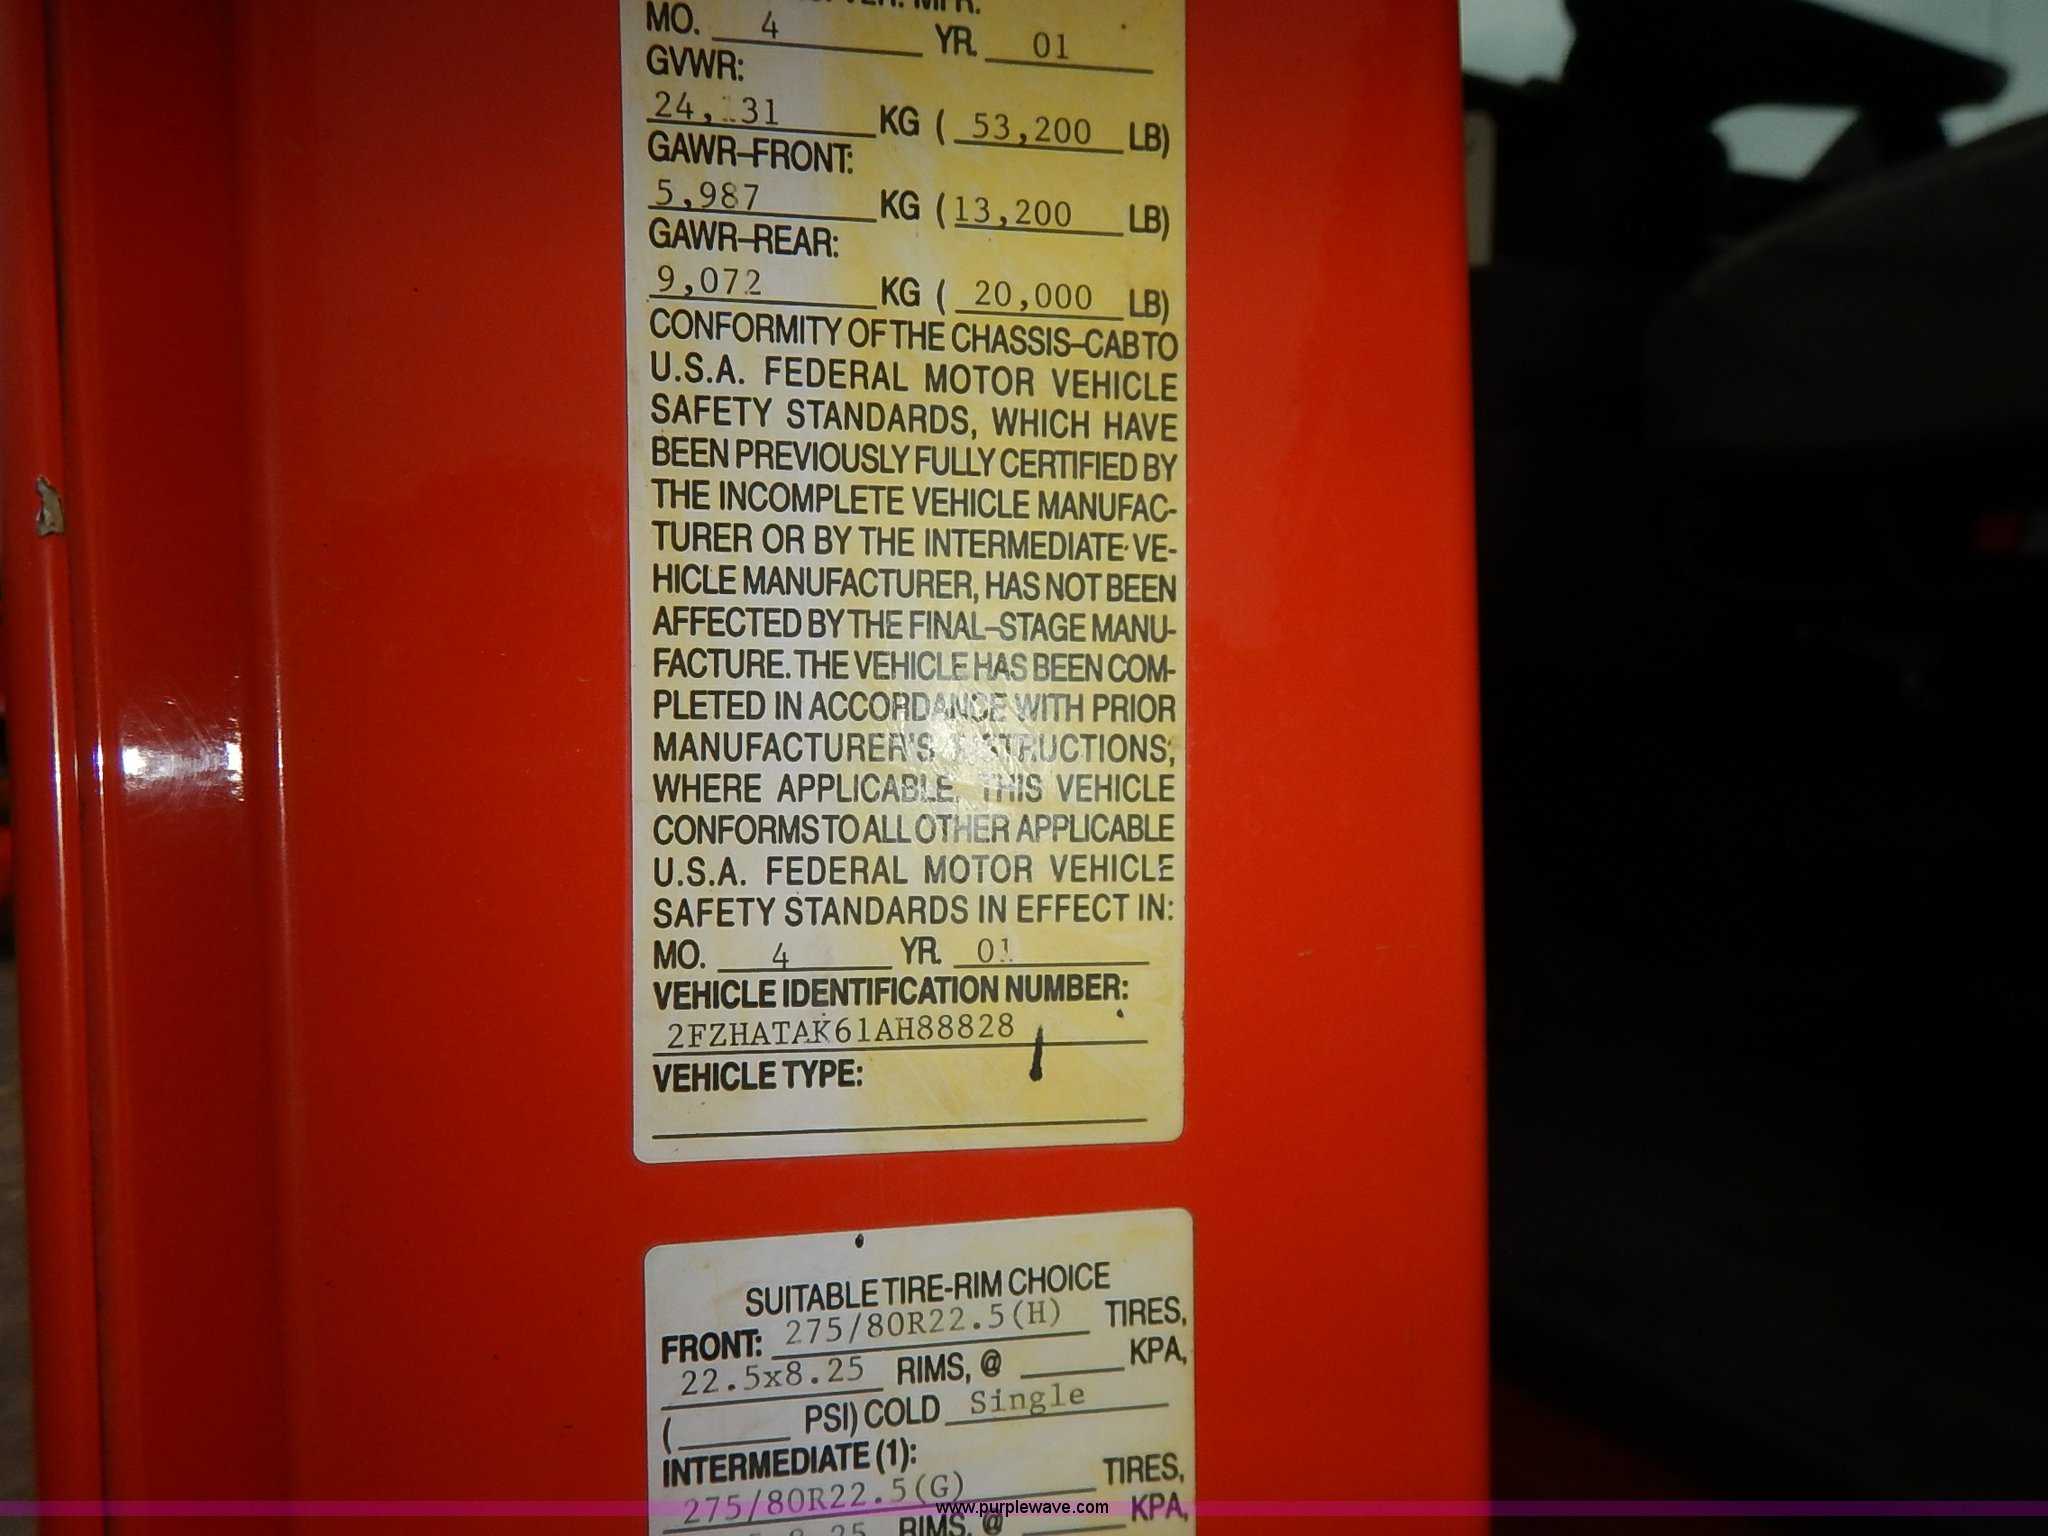 MO. 4 YR. 01
GVWR:
24,131 KG ( 53,200 LB)
GAWR-FRONT:
5,987 KG (13,200 LB)
GAWR-REAR:
9,072 KG ( 20,000 LB)
CONFORMITY OF THE CHASSIS-CAB TO
U.S.A. FEDERAL MOTOR VEHICLE
SAFETY STANDARDS, WHICH HAVE
BEEN PREVIOUSLY FULLY CERTIFIED BY
THE INCOMPLETE VEHICLE MANUFAC-
TURER OR BY THE INTERMEDIATE VE-
HICLE MANUFACTURER, HAS NOT BEEN
AFFECTED BY THE FINAL-STAGE MANU-
FACTURE. THE VEHICLE HAS BEEN COM-
PLETED IN ACCORDANCE WITH PRIOR
MANUFACTURER'S INSTRUCTIONS,
WHERE APPLICABLE. THIS VEHICLE
CONFORMS TO ALL OTHER APPLICABLE
U.S.A. FEDERAL MOTOR VEHICLE
SAFETY STANDARDS IN EFFECT IN:
MO. 4 YR. 01
VEHICLE IDENTIFICATION NUMBER:
2FZHATAK61AH88828
VEHICLE TYPE:
SUITABLE TIRE-RIM CHOICE
FRONT: 275/80R22.5(H) TIRES,
22.5x8.25 RIMS, @ KPA,
( PSI) COLD Single
INTERMEDIATE (1):
275/80R22.5(G) TIRES,
RIMS, @ KPA,
www.purplewave.com